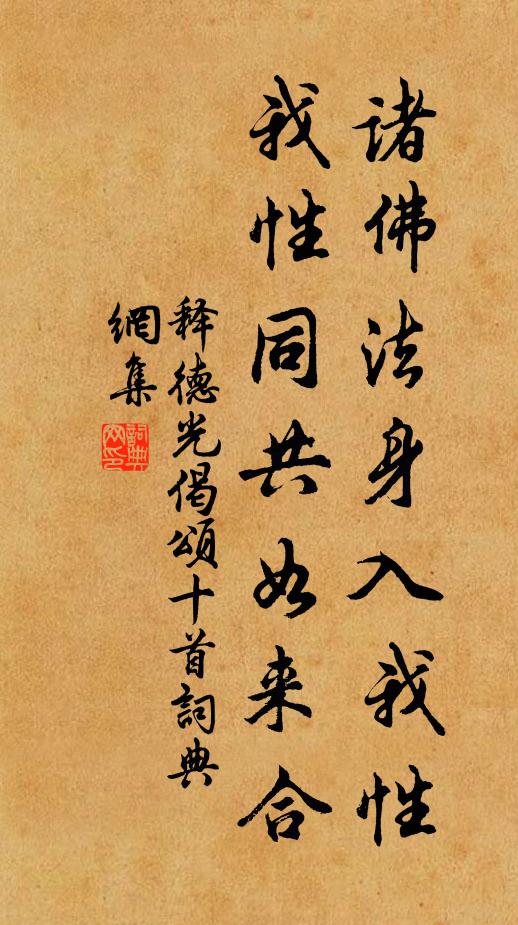 诸佛法身入我性
我性同共如来合
释德光偈頌十首詞典
網集
詞典網印